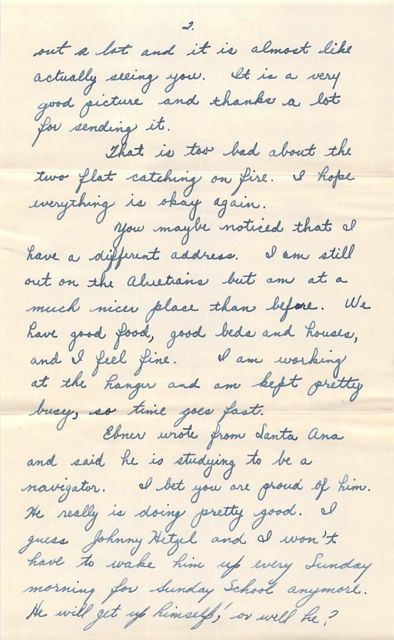 2.
out a lot and it is almost like
actually seeing you. It is a very
good picture and thanks a lot
for sending it.
That is too bad about the
two flat catching on fire. I hope
everything is okay again.
You maybe noticed that I
have a different address. I am still
out on the Aluetians but am at a
much nicer place than before. We
have good food, good beds and houses,
and I feel fine. I am working
at the hangur and am kept pretty
busy, so time goes fast.
Ebner wrote from Santa Ana
and said he is studying to be a
navigator. I bet you are proud of him.
He really is doing pretty good. I
guess Johnny Hetzel and I won't
have to wake him up every Sunday
morning for Sunday School anymore.
He will get up himself, or will he?